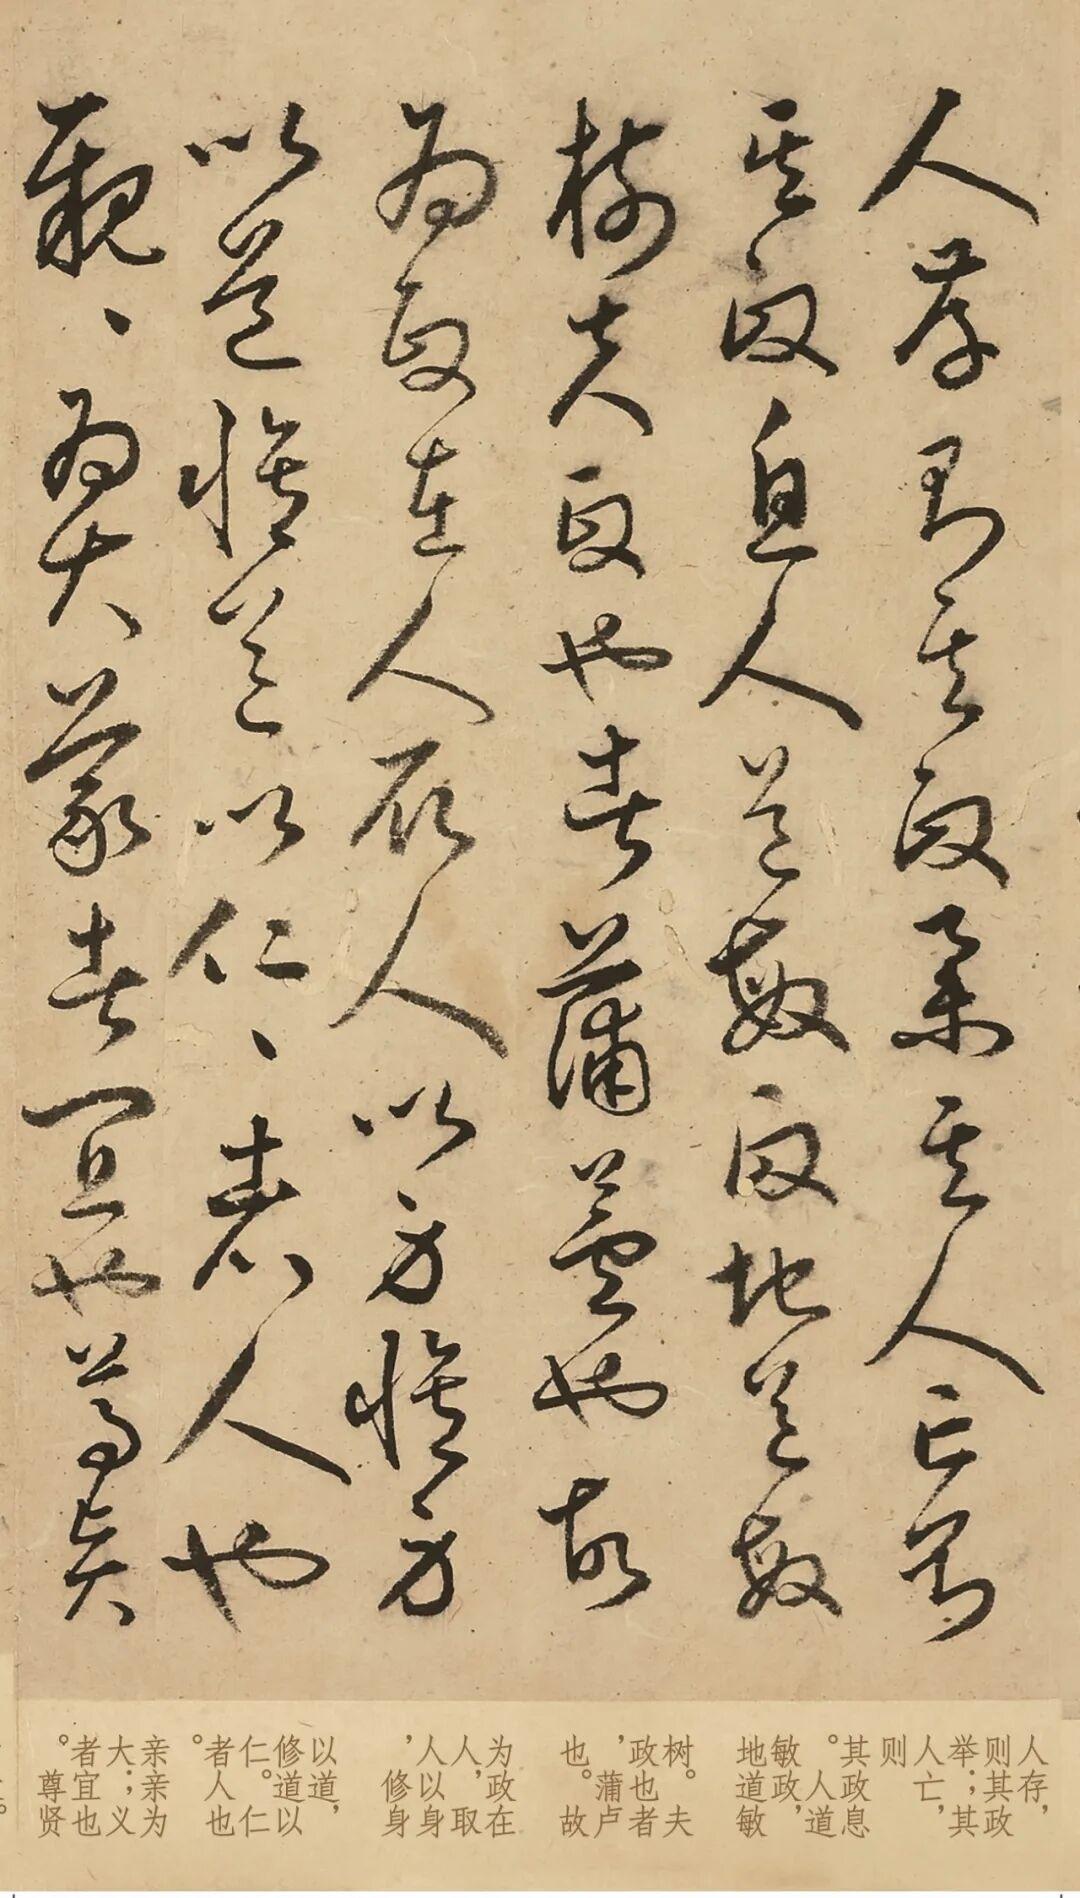 人存則其政舉其人亡則
其政息人道敏政地道敏
樹夫政也者蒲蘆也故
為政在人取人以身脩身
以道脩道以仁〻者人也
親〻為大義者宜也尊賢
人存，
则其政
举；其
人亡，
则
其政息
。人道
敏政，
地道敏
树。夫
政也者
，蒲卢
也。故
为政在
人，取
人以身
，修身
以道，
修道以
仁。仁
者人也
。
亲亲为
大；义
者宜也
。尊贤